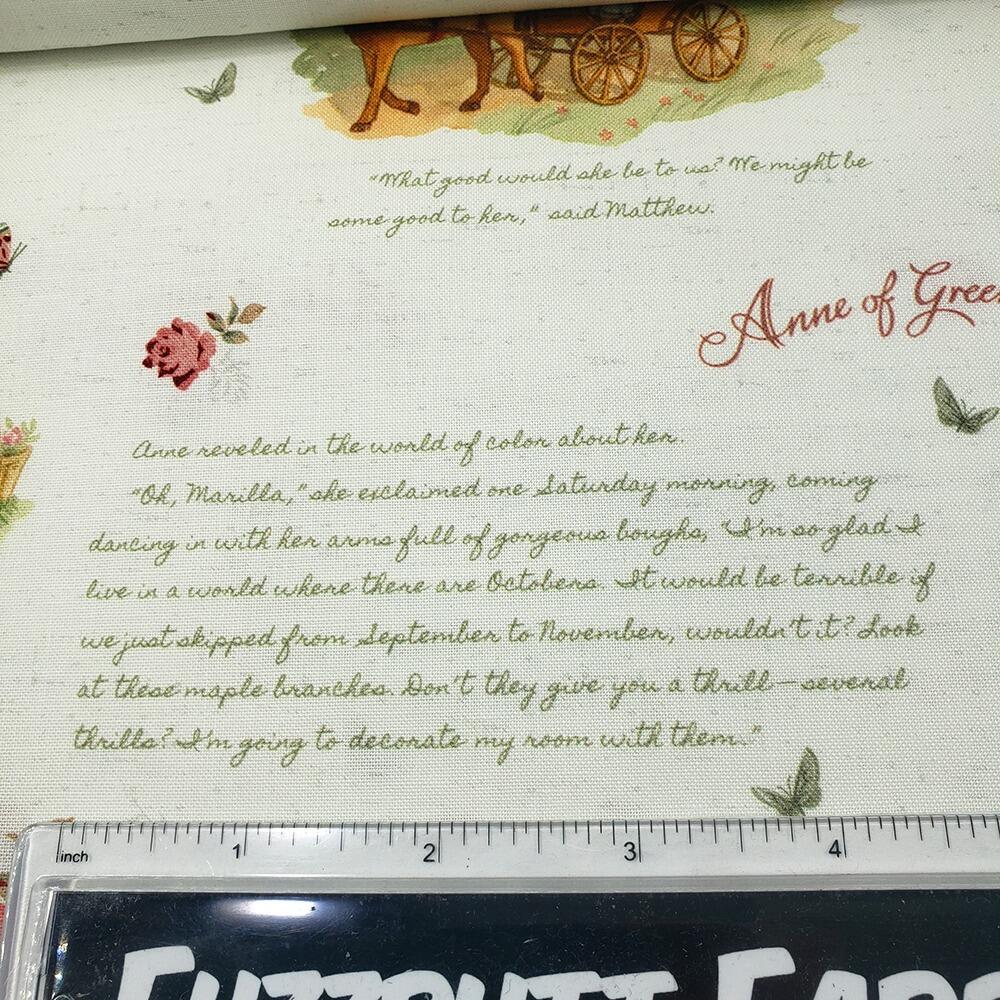 "What good would she be to us? We might be
some good to her," said Matthew.
Anne of Gree
Anne reveled in the world of color about her.
"Oh, Marilla," she exclaimed one Saturday morning, coming
dancing in with her arms full of gorgeous boughs, "I'm so glad I
live in a world where there are Octobers. It would be terrible if
we just skipped from September to November, wouldn't it? Look
at these maple branches. Don't they give you a thrill—several
thrills? I'm going to decorate my room with them."
inch 1 2 3 4